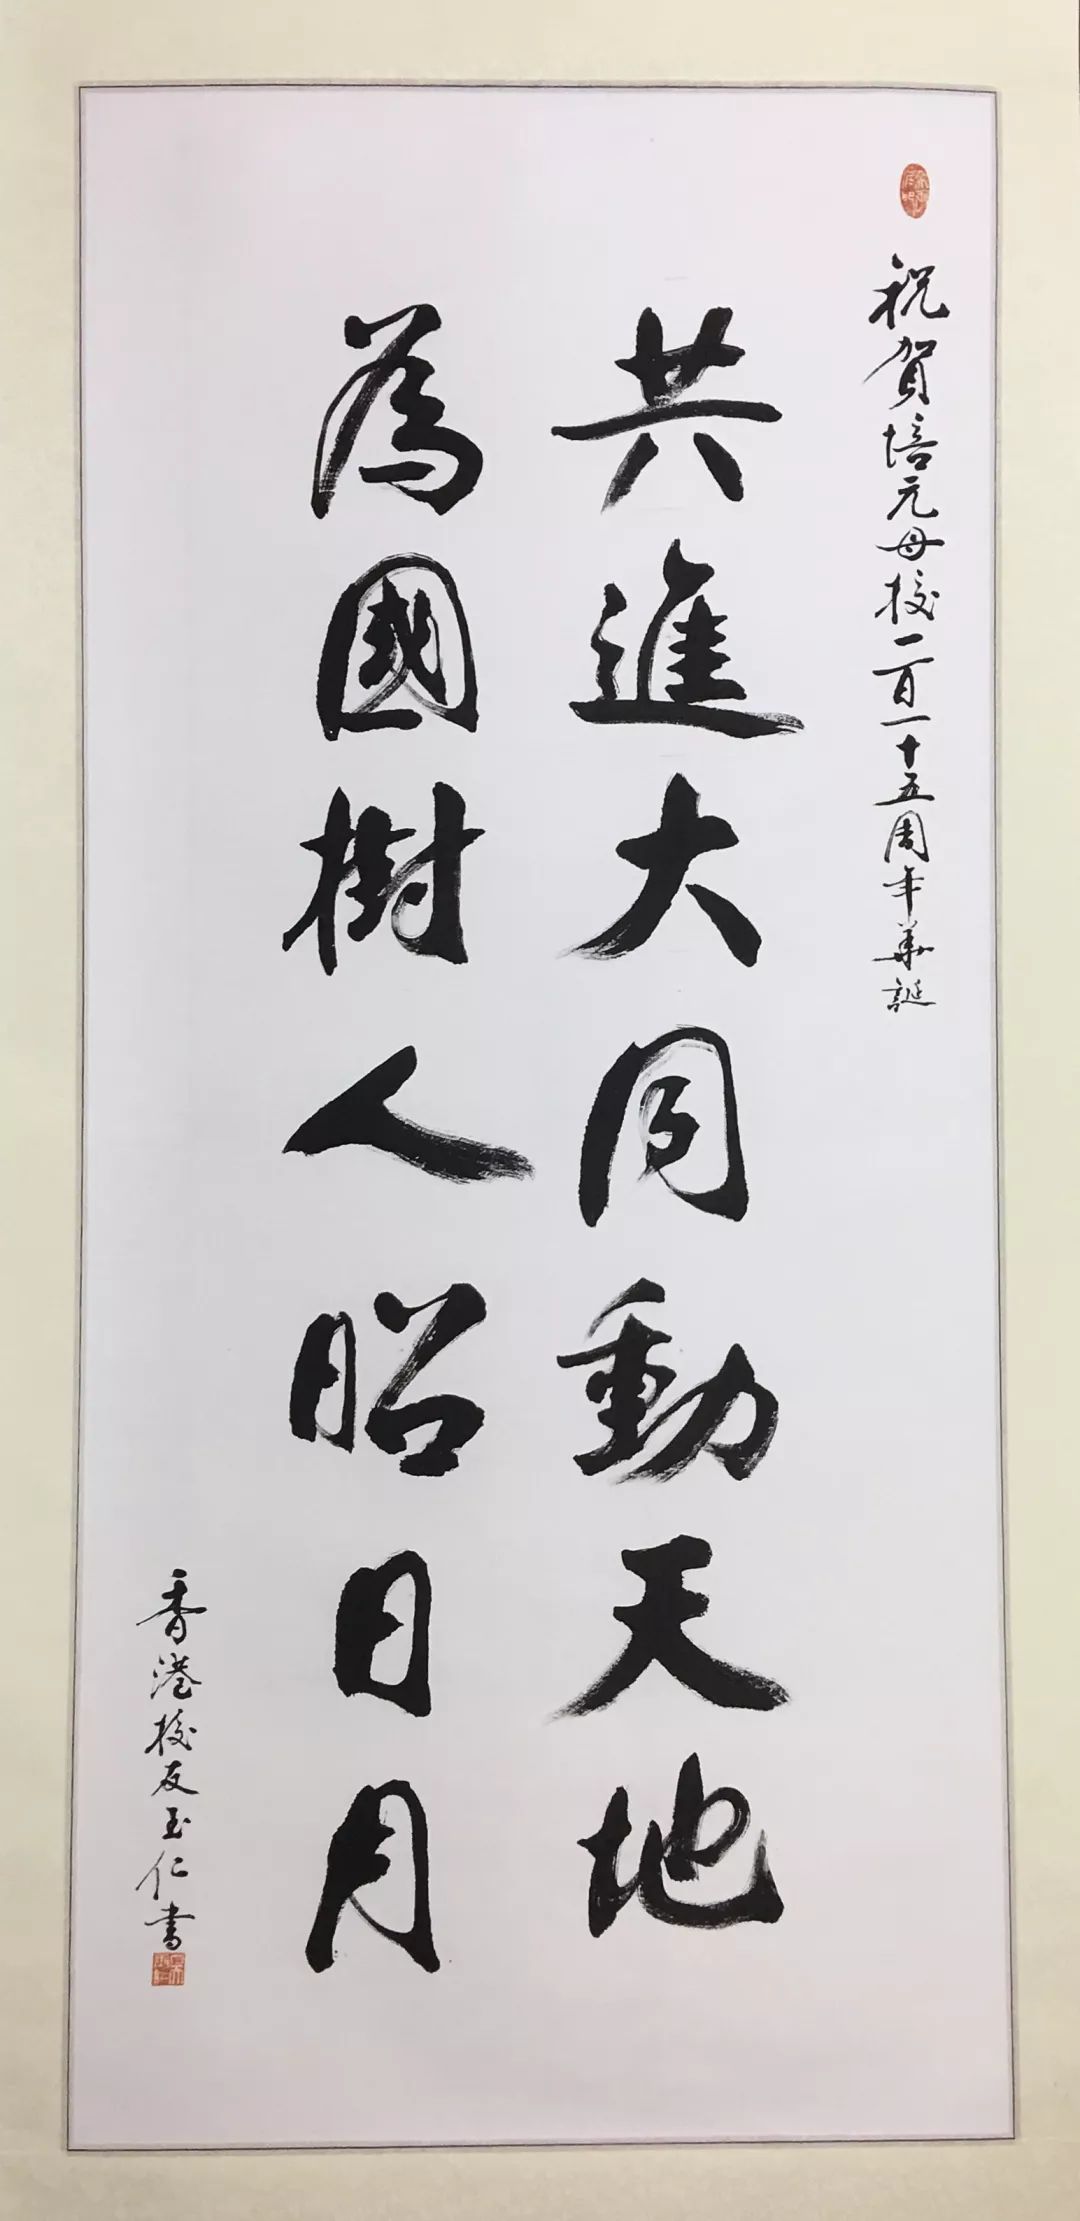 祝賀培元母校一百一十五周年華誕
共進大同動天地
為國樹人昭日月
香港校友玉仁書